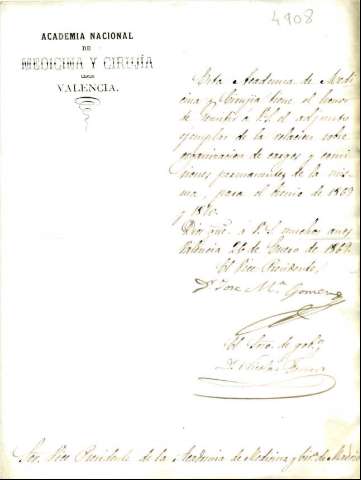 4908
ACADEMIA NACIONAL
DE
MEDICINA Y CIRUJÍA
DE
VALENCIA.
Esta Academia de Medi
cina y Cirujía tiene el honor
de remitir a V.S. el adjunto
ejemplar de la relacion sobre
organizacion de cargos y comi
siones permanentes de la mis
ma, para el bienio de 1869
y 1870.
Dios gue. á V.S. muchos años
Valencia 26 de Enero de 1869.
El Vice Presidente,
Dr. Jose Ma. Gomez
El Srio. de gob.
D. Nicolas
Sor. Vice Presidente de la Academia de Medicina y Cir.a de Madrid